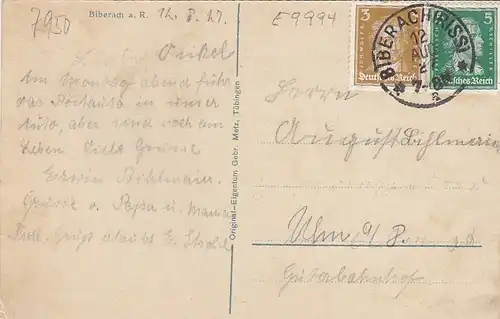 7950
Biberach a. R. 12. 8. 27.
E9994
Lieber Onkel
Am Montag abend fuhr
das Postauto in unser
Auto, aber sind noch am
Leben Viele Grüsse
Erwin Bihlmaier.
Grüsse v. Papa u. Mama
Original-Eigentum Gebr. Metz, Tübingen
3
Deutsches Reich
5
Deutsches Reich
BIBERACH (RISS)
12
AUG
Herrn
August Bihlmaier
Ulm a/D.
Güterbahnhof